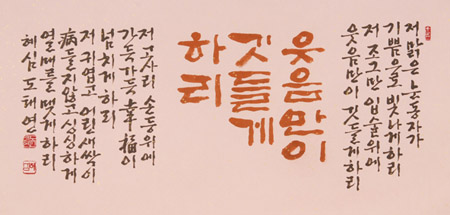 저 맑은 눈동자가
기쁨으로 빛나게 하리
저 조그만 입술위에
웃음만이 깃들게 하리
웃음만이
깃들게
하리
저 고사리 손등위에
가득가득 幸福이
넘치게 하리
저 귀엽고 어린 새싹이
病들지 않고 싱싱하게
열매를 맺게 하리
혜심 도태연